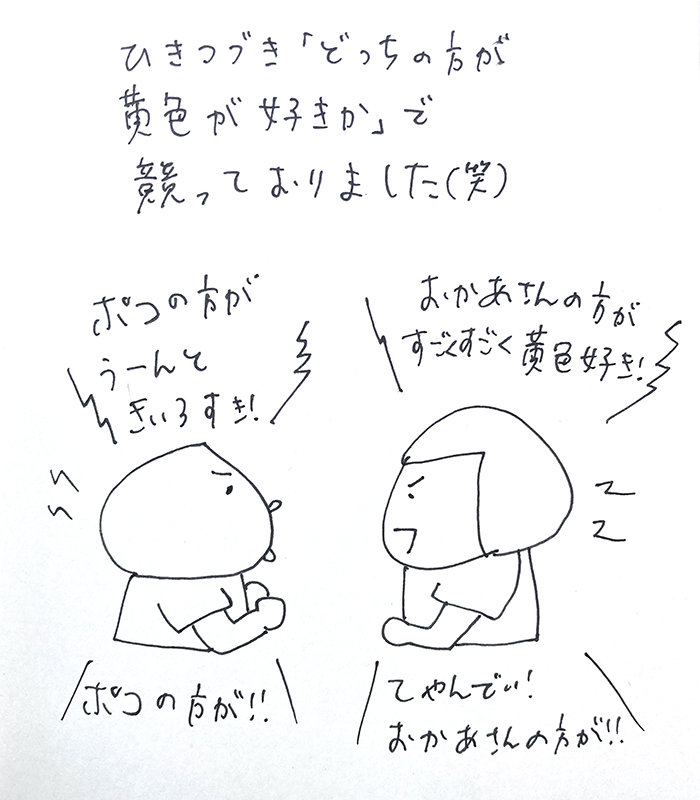 ひきつづき「どっちの方が
黄色が好きか」で
競っておりました(笑)
ポコの方が
うーんと
きいろすき!
おかあさんの方が
すごくすごく黄色好き!
ポコの方が!!
てやんでい!
おかあさんの方が!!